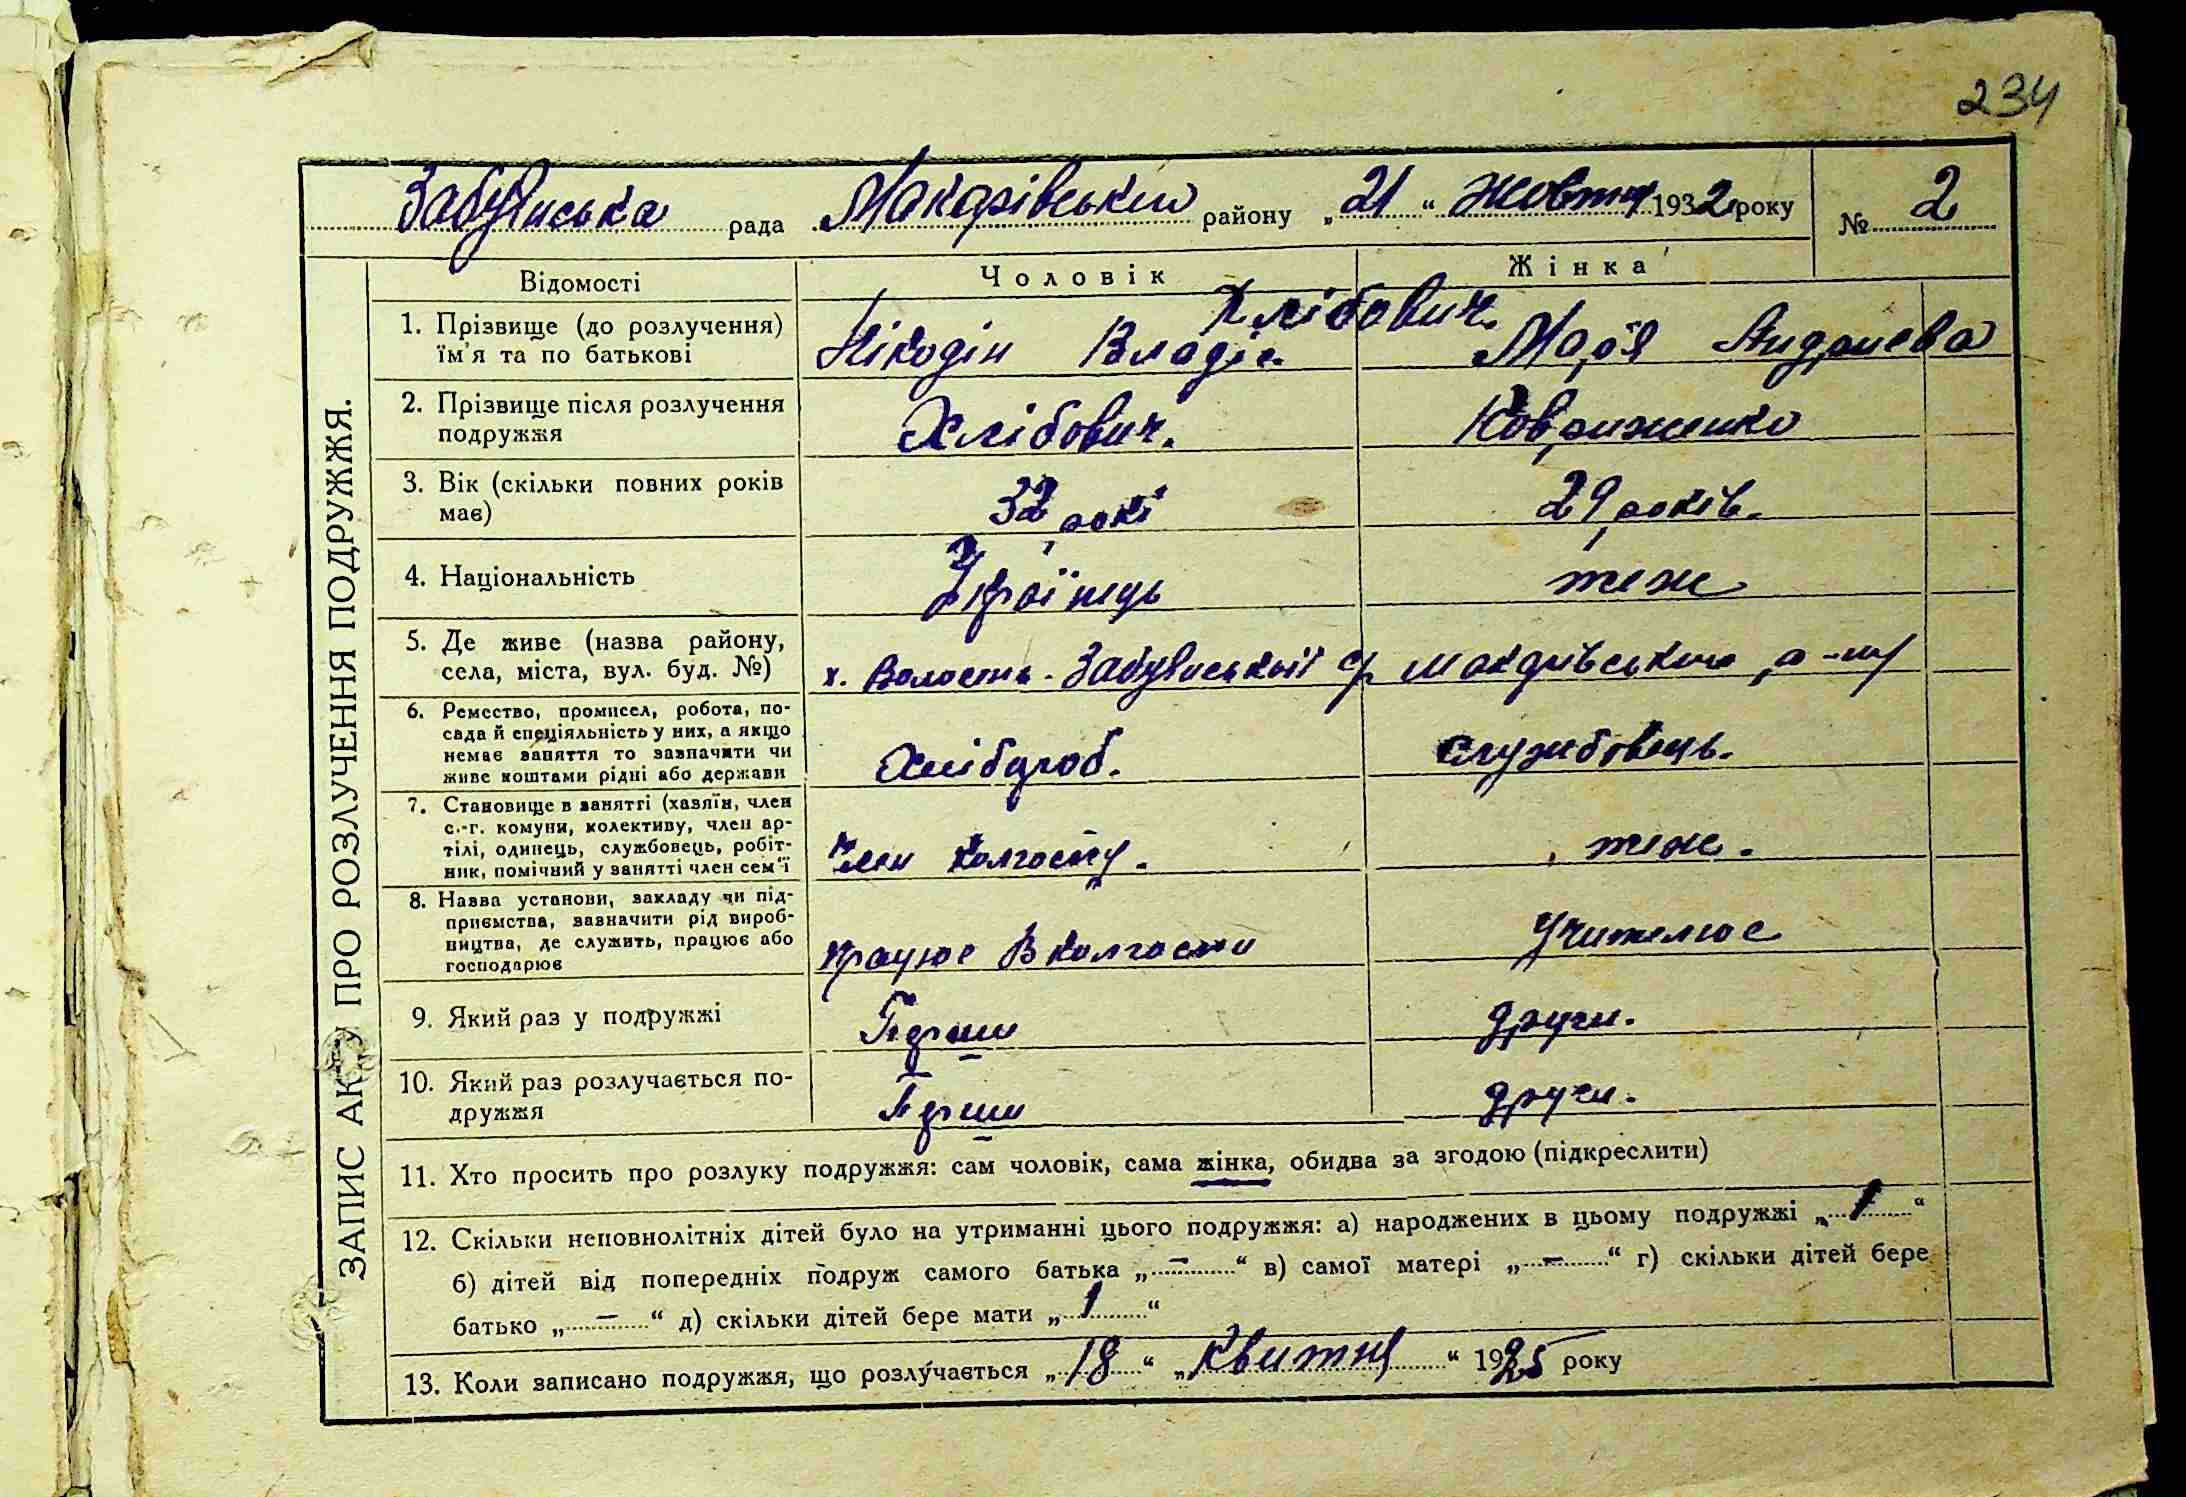 234
Забуянська рада Макарівський району „21“ жовтня 1932 року № 2
ЗАПИС АКТУ ПРО РОЗЛУЧЕННЯ ПОДРУЖЖЯ.
Відомості Чоловік Жінка
Хлібович.
1. Прізвище (до розлучення) їм'я та по батькові Нікодін Владіс. Марія Андриева
2. Прізвище після розлучення подружжя Хлібович. Коврижешко
3. Вік (скільки повних років має) 32 рокі 29 років.
4. Національність Українець теж
5. Де живе (назва району, села, міста, вул. буд. №) х. Волость. Забуянської с/р Макарівського р-ну
6. Ремество, промисел, робота, по-
сада й спеціяльність у них, а якщо
немає заняття то зазначити чи
живе коштами рідні або держави Хлібороб. Службовець.
7. Становище в занятті (хазяїн, член
с.-г. комуни, колективу, член ар-
тілі, одинець, службовець, робіт-
ник, помічний у занятті член сем'ї Член колгоспу. теж.
8. Назва установи, закладу чи під-
приємства, зазначити рід вироб-
ництва, де служить, працює або
господарює працює в колгоспи Учителює
9. Який раз у подружжі Перший други.
10. Який раз розлучається по-
дружжя Перший други.
11. Хто просить про розлуку подружжя: сам чоловік, сама жінка, обидва за згодою (підкреслити)
12. Скільки неповнолітніх дітей було на утриманні цього подружжя: а) народжених в цьому подружжі „1“
б) дітей від попередніх подруж самого батька „–“ в) самої матері „–“ г) скільки дітей бере
батько „–“ д) скільки дітей бере мати „1“
13. Коли записано подружжя, що розлучається „18“ „Квитня“ 1925 року